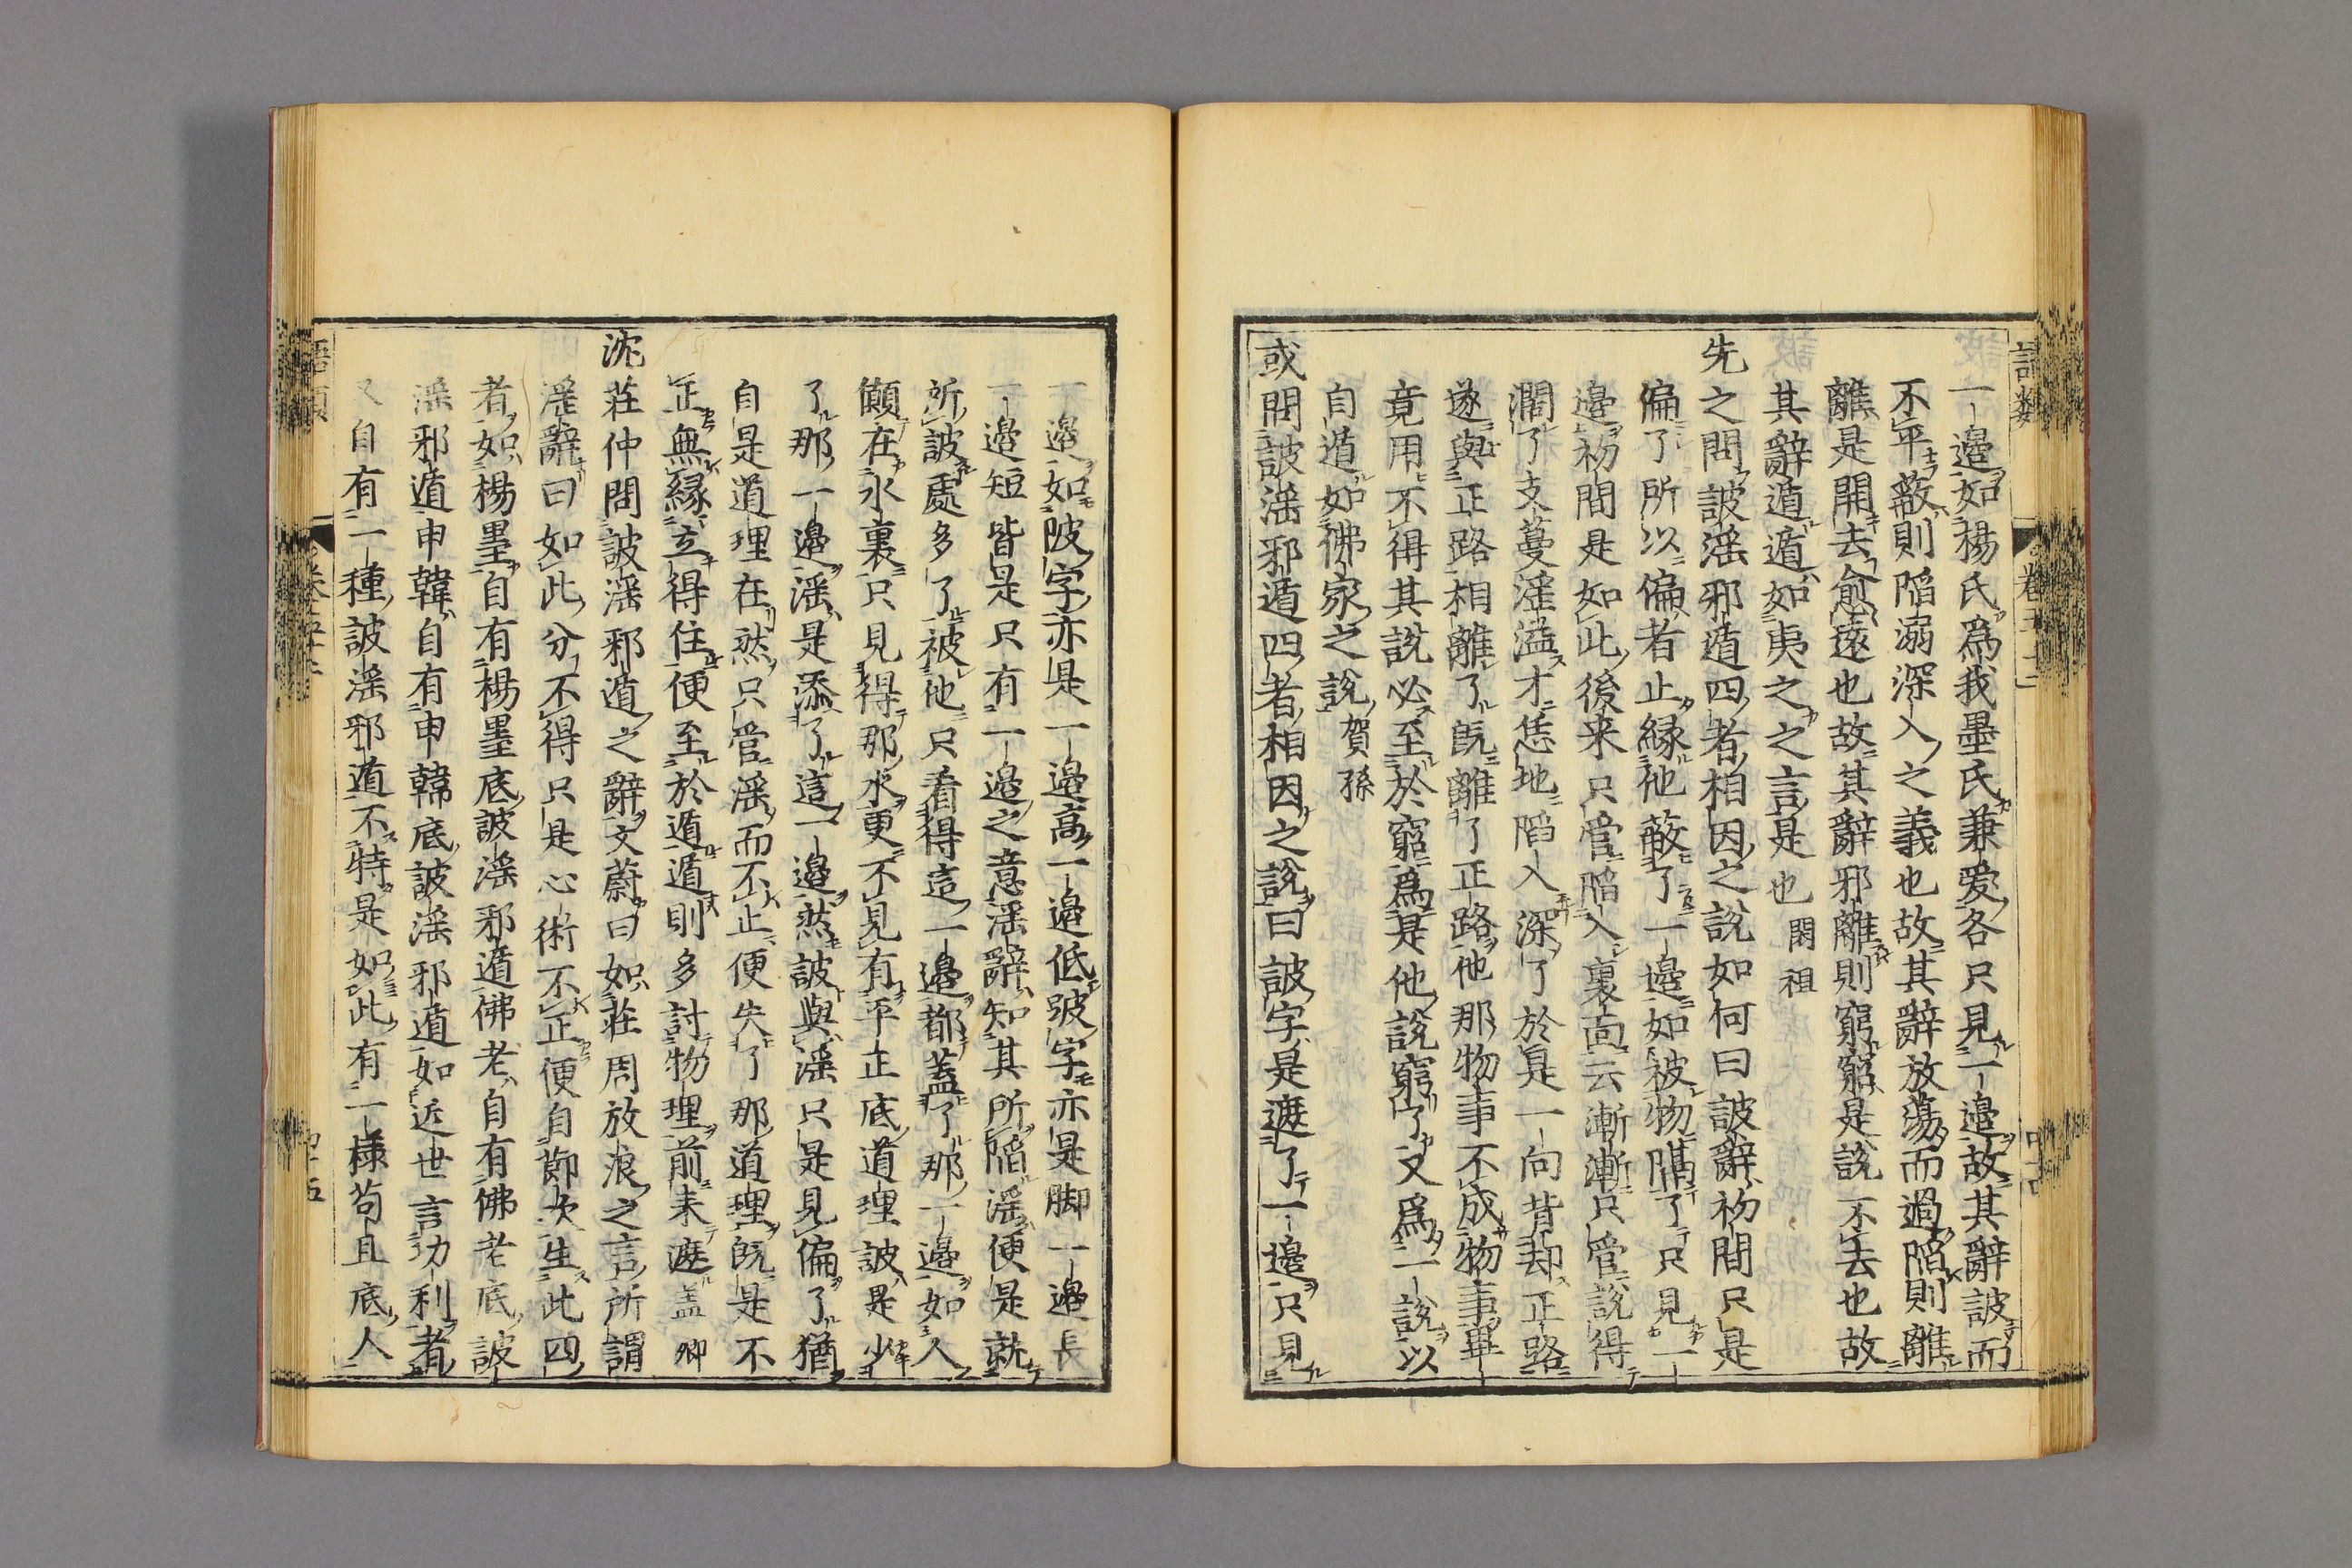 語類
卷五十二
一邉如楊氏爲我墨氏兼愛各只見一邉故其辭詖而
不平蔽則陷溺深入之義也故其辭放蕩而過陷則離
離是開去愈遠也故其辭邪離則窮窮是說不去也故
其辭遁遁如夷之之言是也 閎祖
先之問詖淫邪遁四者相因之說如何曰詖辭初間只是
偏了所以偏者止緣他蔽了一邉如被物隔了只見一
邉初間是如此後來只管陷入裏面云漸漸只管說得
濶了支蔓淫溢才恁地陷入深了於是一向背却正路
遂與正路相離了既離了正路他那物事不成物事畢
竟用不得其說必至於窮爲是他說窮了又爲一說以
自遁如佛家之說 賀孫
或問詖淫邪遁四者相因之說曰詖字是遮了一邉只見
一邉如陂字亦是一邉高一邉低跛字亦是脚一邉長
一邉短皆是只有一邉之意淫辭知其所陷淫便是就
所詖處多了被他只看得這一邉都蓋了那一邉如人
攧在水裏只見得那水更不見有平正底道理詖是少
了那一邉淫是添了這一邉然詖與淫只是見偏了猶
自是道理在然只管淫而不止便失了那道理既是不
正無緣立得住便至於遁遁則多討物理前來遮盖 卿
沈莊仲問詖淫邪遁之辭文蔚曰如莊周放浪之言所謂
淫辭曰如此分不得只是心術不正便自節次生此四
者如楊墨自有楊墨底詖淫邪遁佛老自有佛老底詖
淫邪遁申韓自有申韓底詖淫邪遁如近世言功利者
又自有一種詖淫邪遁不特是如此有一樣苟且底人
語類
卷五十二
四十五